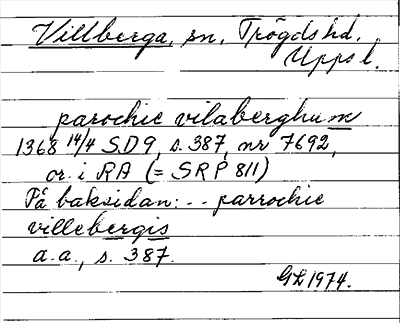 Villberga, sn, Trögds hd,
Upps l.
parochie vilaberghum
1368 14/4 SD9, s. 387, nr 7692,
or. i RA (= SRP 811)
På baksidan: -- parrochie
villebergis
a.a., s. 387.
GL 1974.